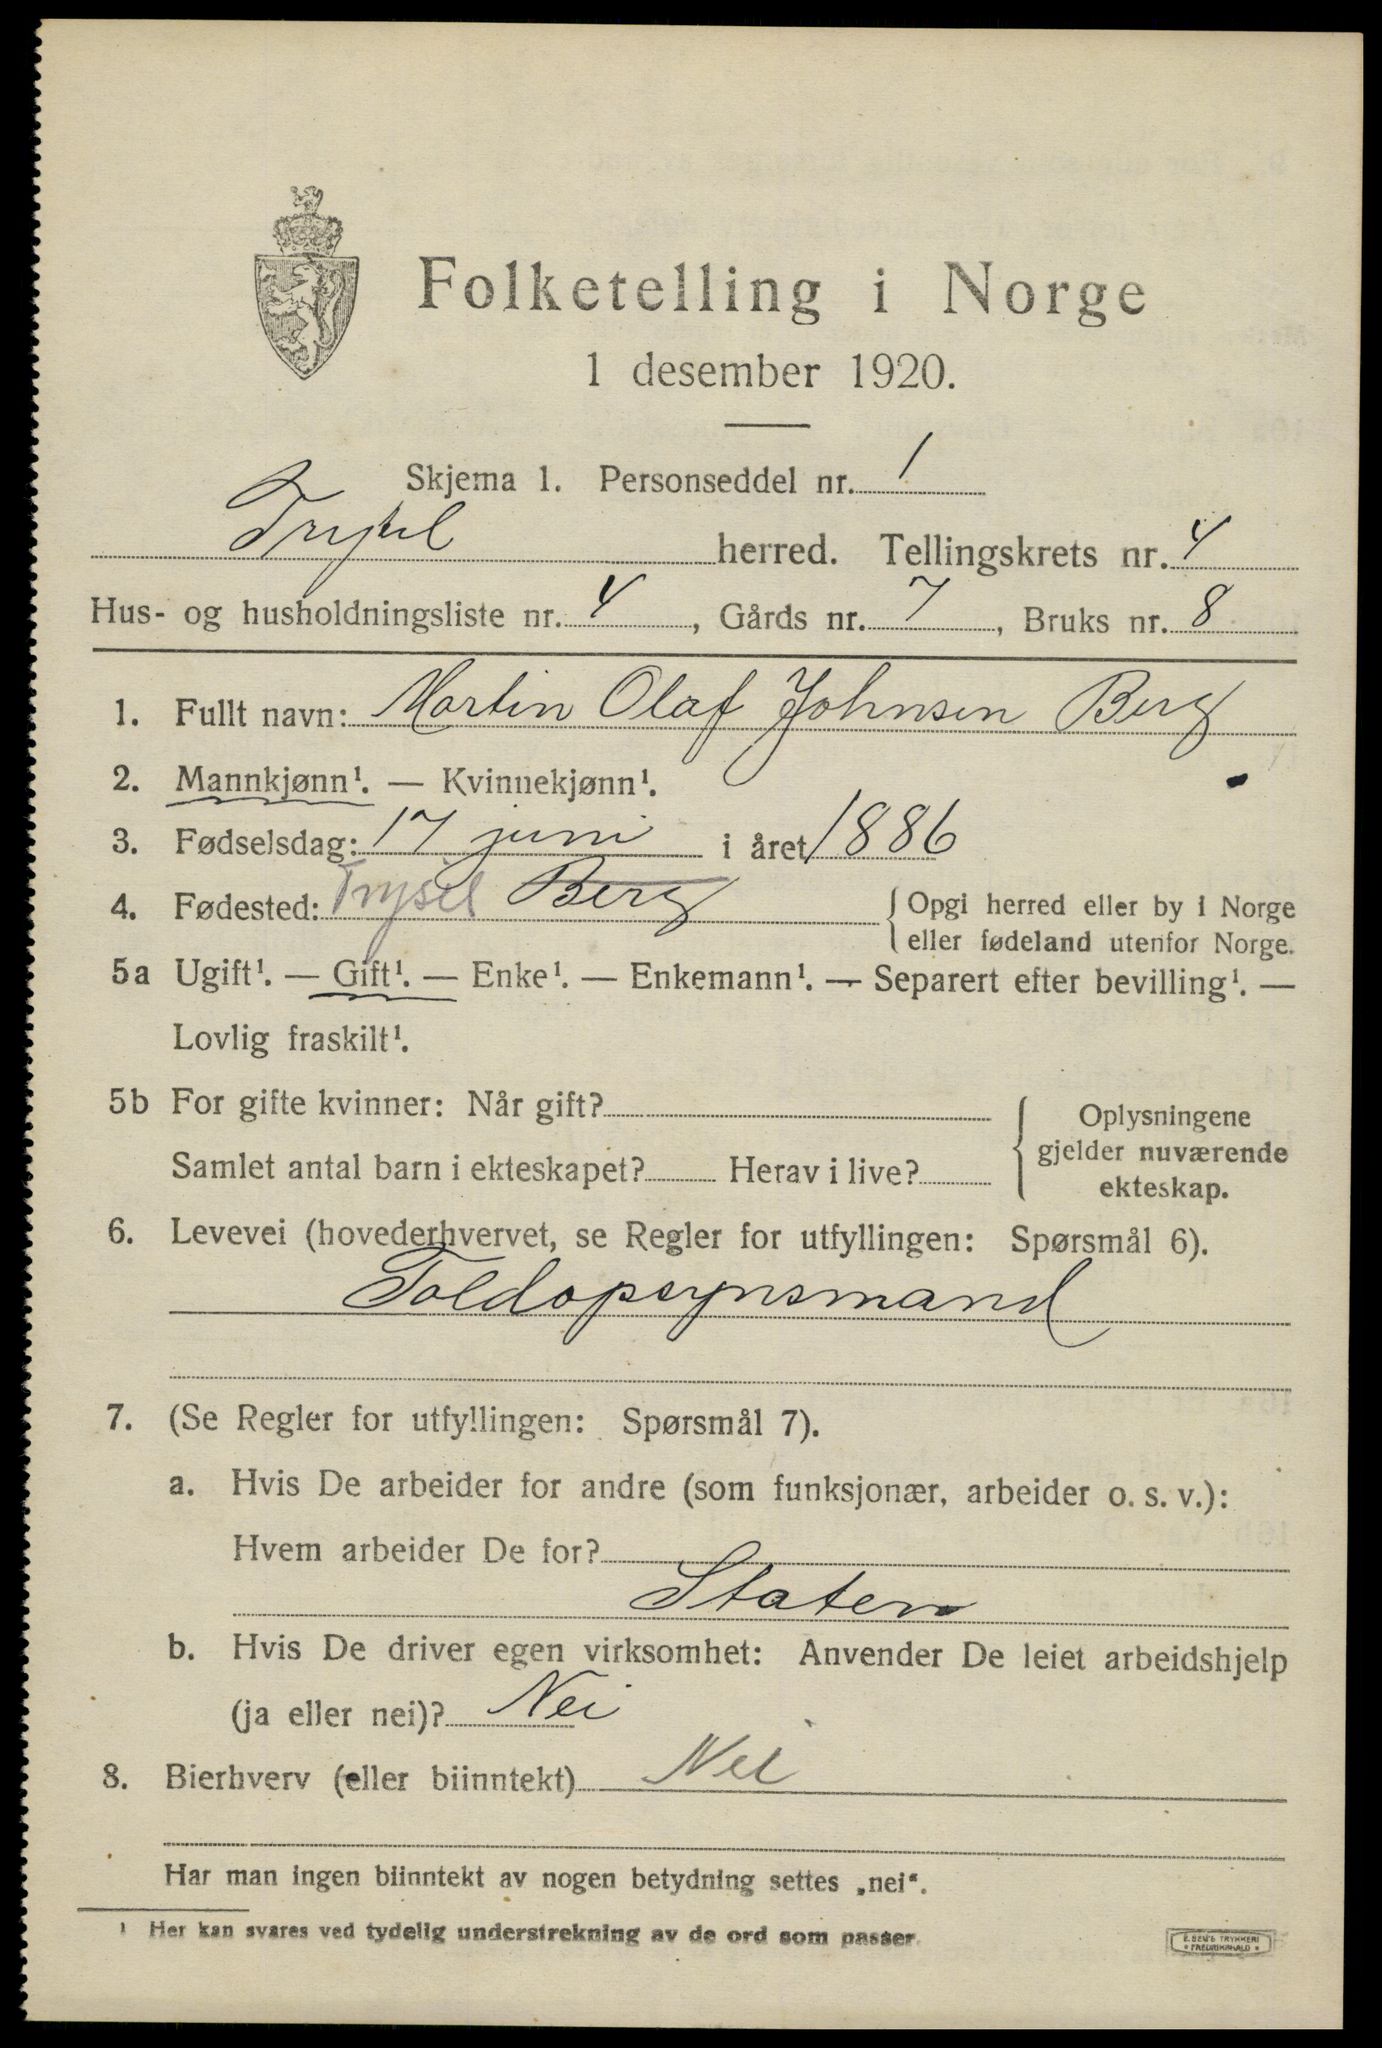 Folketelling i Norge
1 desember 1920.
Skjema 1. Personseddel nr. 1
Trysil herred. Tellingskrets nr. 4
Hus- og husholdningsliste nr. 4, Gårds nr. 7, Bruks nr. 8
1. Fullt navn: Martin Olaf Johnsen Berg
2. Mannkjønn¹. — Kvinnekjønn¹.
3. Fødselsdag: 17 juni i året 1886
4. Fødested: Trysil Berg { Opgi herred eller by i Norge
eller fødeland utenfor Norge.
5a Ugift¹. — Gift¹. — Enke¹. — Enkemann¹. — Separert efter bevilling¹. —
Lovlig fraskilt¹.
5b For gifte kvinner: Når gift?
Samlet antal barn i ekteskapet? Herav i live?
{ Oplysningene
gjelder nuværende
ekteskap.
6. Levevei (hovederhvervet, se Regler for utfyllingen: Spørsmål 6).
Toldopsynsmand
7. (Se Regler for utfyllingen: Spørsmål 7).
a. Hvis De arbeider for andre (som funksjonær, arbeider o. s. v.):
Hvem arbeider De for?
Staten
b. Hvis De driver egen virksomhet: Anvender De leiet arbeidshjelp
(ja eller nei)? Nei
8. Bierhverv (eller biinntekt) Nei
Har man ingen biinntekt av nogen betydning settes „nei“.
¹ Her kan svares ved tydelig understrekning av de ord som passer.
E. SEM'S TRYKKERI
* FREDRIKSHALD *